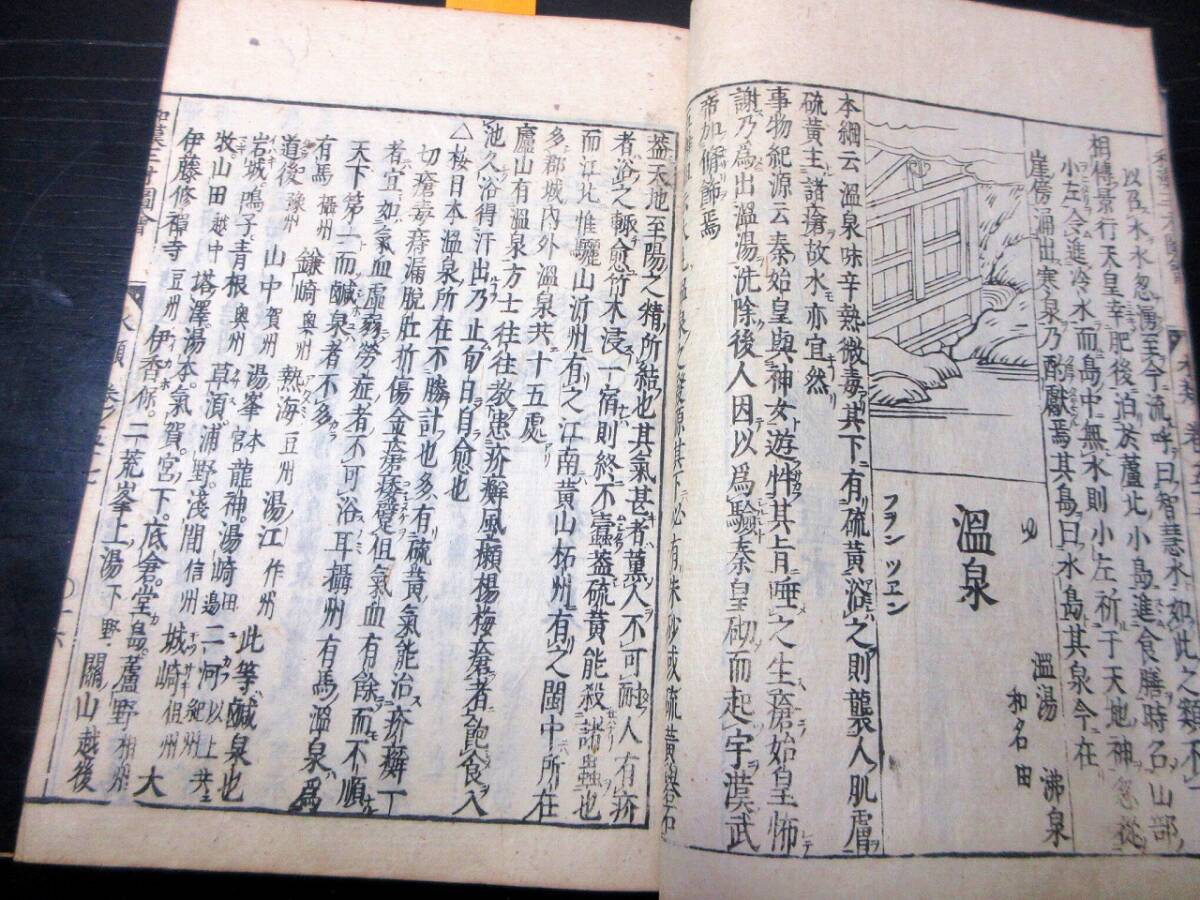 以在木水忽湧至今流呼曰智慧水如此之類不
相傳景行天皇幸肥後泊於蘆北小島進食膳時召山部
小左令進冷水而島中無水則小左祈于天地神忽從
崖傍涌出寒泉乃酌獻焉其島曰水島其泉今在
ゆ
溫泉
フヲン ツエン
溫湯 沸泉
和名由
本綱云溫泉味辛熱微毒其下有硫黃浴之則襲人肌膚
硫黃主諸瘡故水亦宜然
事物紀源云秦始皇與神女遊忤其旨唾之生瘡始皇怖
謝乃為出溫湯洗除後人因以為驗秦皇砌而起宇漢武
帝加脩飾焉
溫泉之發源其下必有硃砂或硫黃礜石
蓋天地至陽之精所結也其氣甚者薰人不可耐人有疥
者浴之輙愈竹木浸一宿則終不蠹蓋硫黃能殺諸蟲也
而江北惟驪山沂州有之江南黃山柘州有之閩中所在
多郡城內外溫泉共十五處
廬山有溫泉方士往往教患疥癬風癩楊梅瘡者飽食入
池久浴得汗出乃止旬日自愈也
△按日本溫泉所在不勝計也多有硫黃氣能治疥癬丁
切瘡毒痔漏脫肛折傷金瘡痿躄但氣血有餘而不順
者宜如氣血虛弱勞症者不可浴耳攝州有馬溫泉為
天下第一而鹹泉者不多
有馬 攝州 鎌崎 奧州 熱海 豆州 湯江 作州
道後 豫州 山中 賀州 湯峯 本宮 龍神 湯崎 田邊 二河 以上共ニ紀州 此等鹹泉也
岩城 鳴子 青根 奧州 草湏 浦野 淺間 信州 城崎 但州 大
牧 山田 越中 塔澤 湯本 氣賀 宮下 底倉 堂島 蘆野 相州
伊藤 修禪寺 豆州 伊香保 二荒峯上湯 下野 關山 越後
和漢三才圖會
水類 卷之五十七
○十六